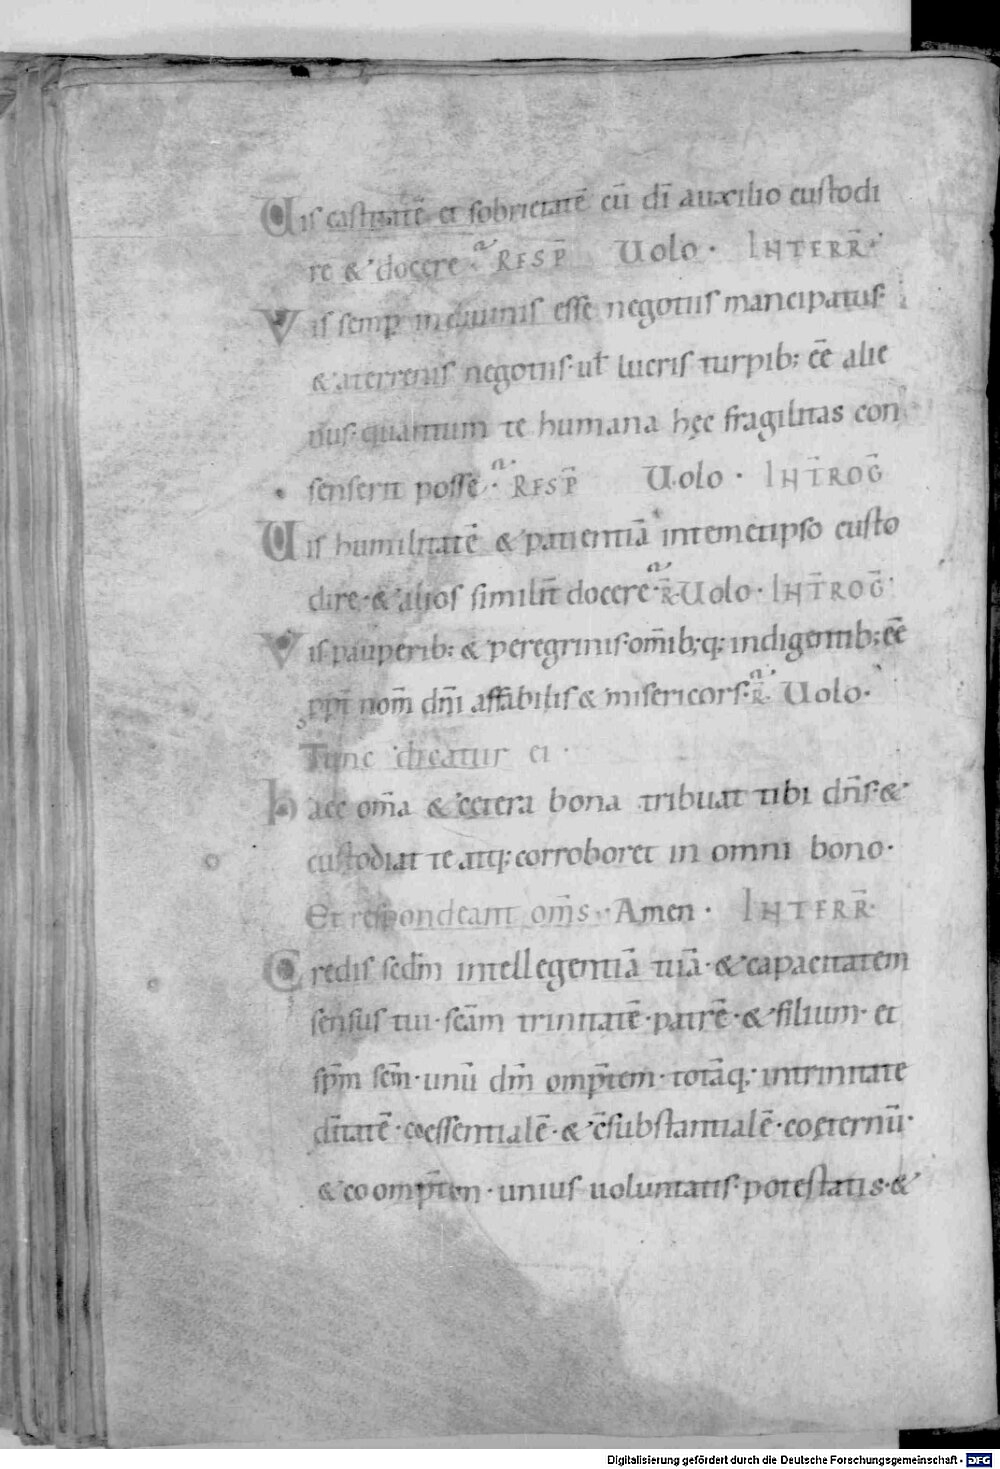 Uis castitatē et sobrietatē cū dī auxilio custodi
re & docere · RESP̄ Uolo · INTERR̄ ·
Vis semp in diuinis esse negotiis mancipatus
& a terrenis negotiis · ul̄ lucris turpib; ēē alie
nus · quantum te humana hęc fragilitas con
senserit posse · RESP̄ Uolo · INT̄ROḠ
Uis humilitatē & patientiā in temetipso custo
dire · & alios similit̄ docere · R̄ · Uolo · INT̄ROḠ ·
Vis pauperib; & peregrinis · om̄ib;q; indigentib; ēē
ꝓpt̄ nom̄ dn̄i affabilis & misericors · R̄ · Uolo ·
Tunc dicatur ei ·
Haec om̄a & cetera bona tribuat tibi dn̄s · &
custodiat te atq; corroboret in omni bono ·
Et respondeant om̄s · Amen · INTERR̄ ·
Credis sedm̄ intellegentiā tuā · & capacitatem
sensus tui · scām trinitatē · patrē · & filium · et
sp̄m scm̄ · unū dm̄ omp̄tem · totāq; in trinitate
dītatē · coessentialē · & c̄substantialē · coęternū ·
& coomp̄ten · unius uoluntatis · potestatis · &
Digitalisierung gefördert durch die Deutsche Forschungsgemeinschaft - DFG